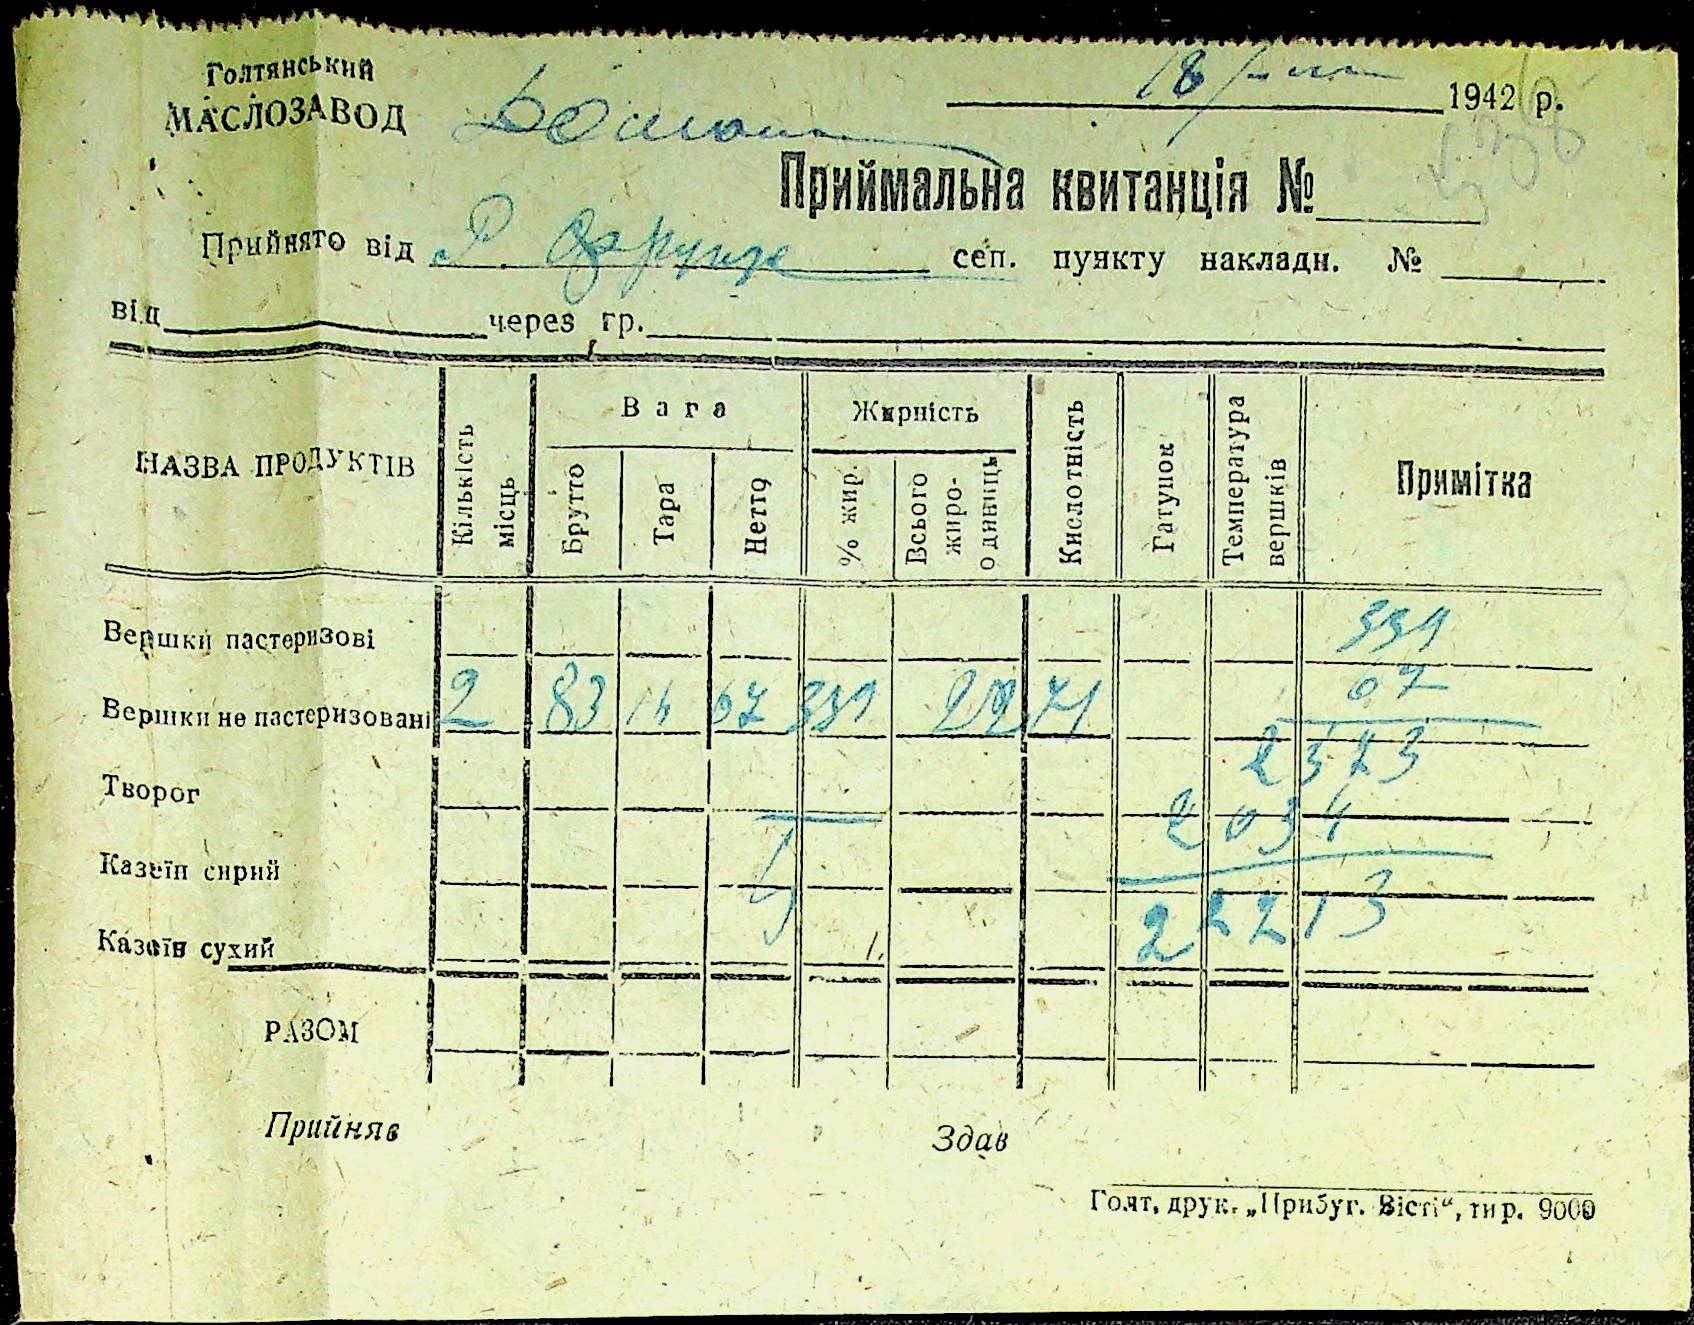 Голтянський
МАСЛОЗАВОД
18 1942 р.
Приймальна квитанція №
Прийнято від Р. Фрунзе сеп. пункту накладн. №
від через гр.
НАЗВА ПРОДУКТІВ
Кількість місць
Вага
Брутто
Тара
Нетто
Жирність
% жир.
Всього жиро-одиниць
Кислотність
Гатунок
Температура вершків
Примітка
Вершки пастеризові 331
67
Вершки не пастеризовані 2 83 16 67 331 71
Творог
Казеїн сирий
Казеїн сухий
22213
РАЗОМ
Прийняв Здав
Голт. друк. „Прибуг. Вісті“, тир. 9000